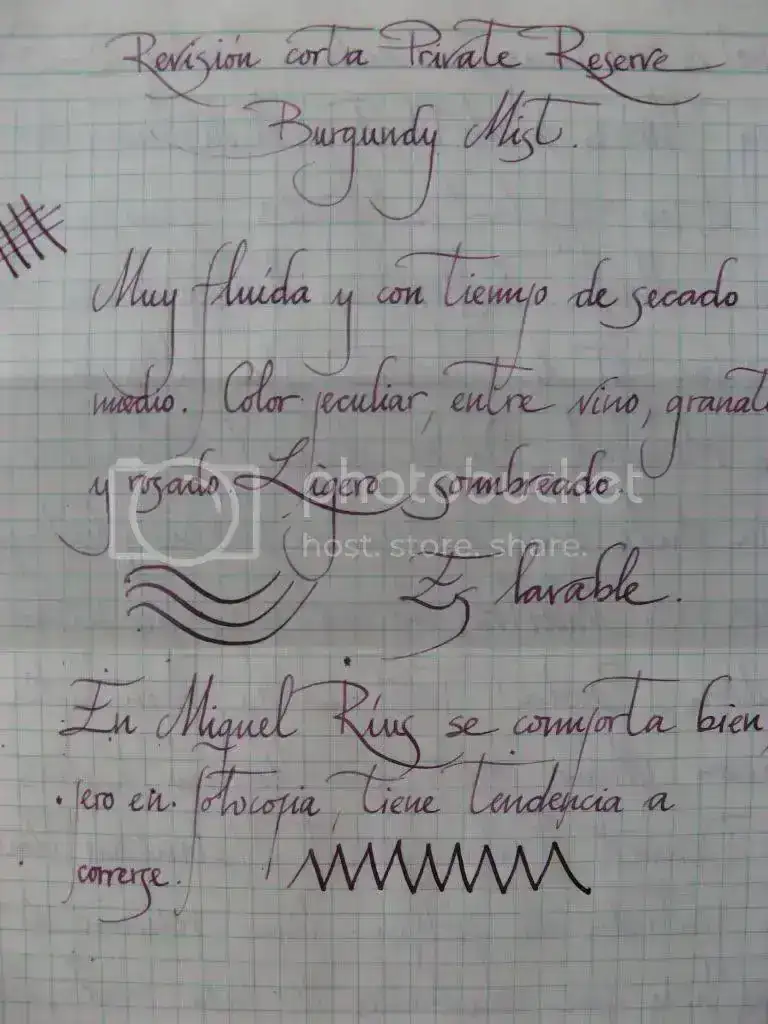 Revisión corta Private Reserve
Burgundy Mist.
Muy fluída y con tiempo de secado
medio. Color peculiar, entre vino, granat
y rosado. Ligero sombreado.
photobucket
host. store. share.
Es lavable.
En Miquel Rius se comporta bien,
pero en fotocopia, tiene tendencia a
correrse.